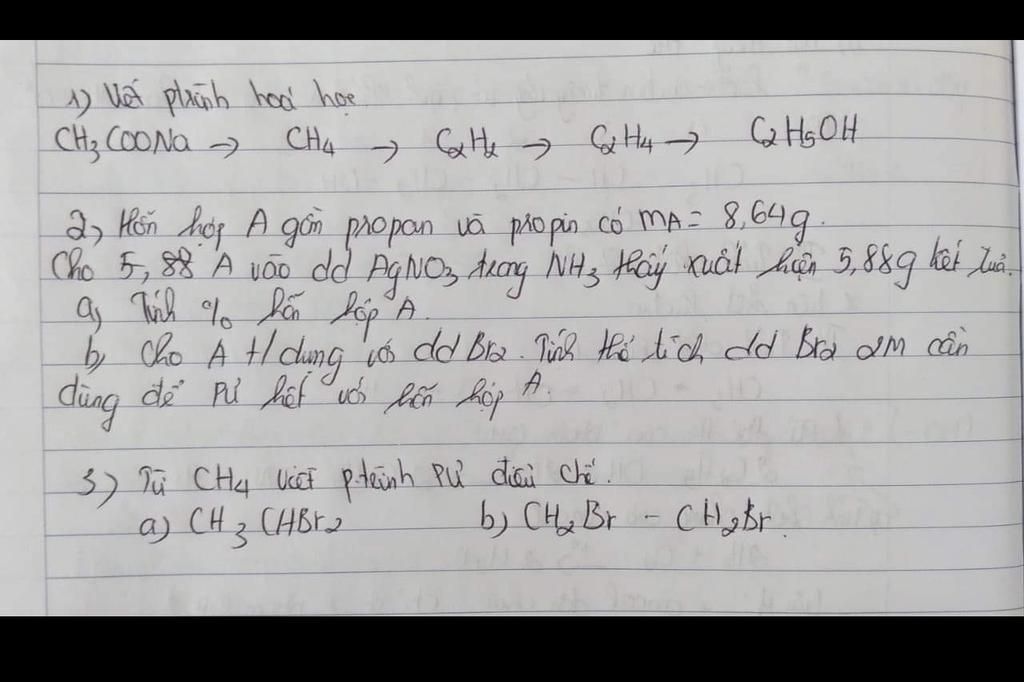 1) Viết ptrình hoá học
CH3COONa → CH4 → C2H2 → C2H4 → C2H5OH
2, Hỗn hợp A gồm propan và propin có mA = 8,64g.
Cho 5,88 A vào dd AgNO3 trong NH3 thấy xuất hiện 5,88g kết tủa.
a, Tính % hỗn hợp A.
b, Cho A t/dụng với dd Br2. Tính thể tích dd Br2 2M cần
dùng để PƯ hết với hỗn hợp A.
3) Từ CH4 viết p.trình PƯ điều chế.
a) CH3CHBr2 b) CH2Br - CH2Br.